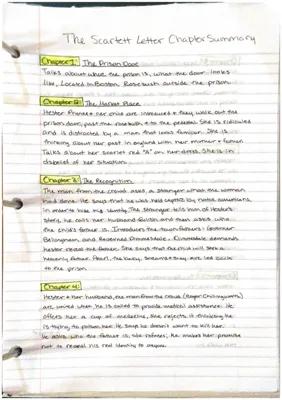 The Scarlett Letter Chapter Summary
Chapter 1: The Prison Door
Talks about where the prison is, what the door looks
like, Located in Boston. Rosebush outside the prison.
Chapter 2: The Market Place
Hester Prynne & her child are introduced & they walk out the
prison door, past the rosebush, to the pedestal. She is ridiculed
and is distracted by a man that was familiar. She is
thinking about her past in England with her mother & father
Talks about her scarlet red "A" on her dress. She is in
disbelief of her situation.
Chapter 3: The Recognition
The man from the crowd asked a stranger what the woman
had done. He says that he was held captive by native americans,
in order to hide his identity. The stranger tells him of Hester's
story, he calls her husband foolish and then asks who
the child's father is. Introduces the town fathers: Governor
Bellingham, and Reverend Dimmesdale. Dimmesdale demands
Hester reveal the father. She says that the child will have a
heavenly father. Pearl, the baby, screams & they are led back
to the prison.
Chapter 4:
Hester & her husband, the man from the crowd (Roger Chillingworth)
are united when he is called to provide medical assistance. He
offers her a cup of medicine, she rejects it thinking he
is trying to poison her. He says he doesn't want to kill her.
He asks who the father is, she refuses, he makes her promise
not to reveal his real identity to anyone.